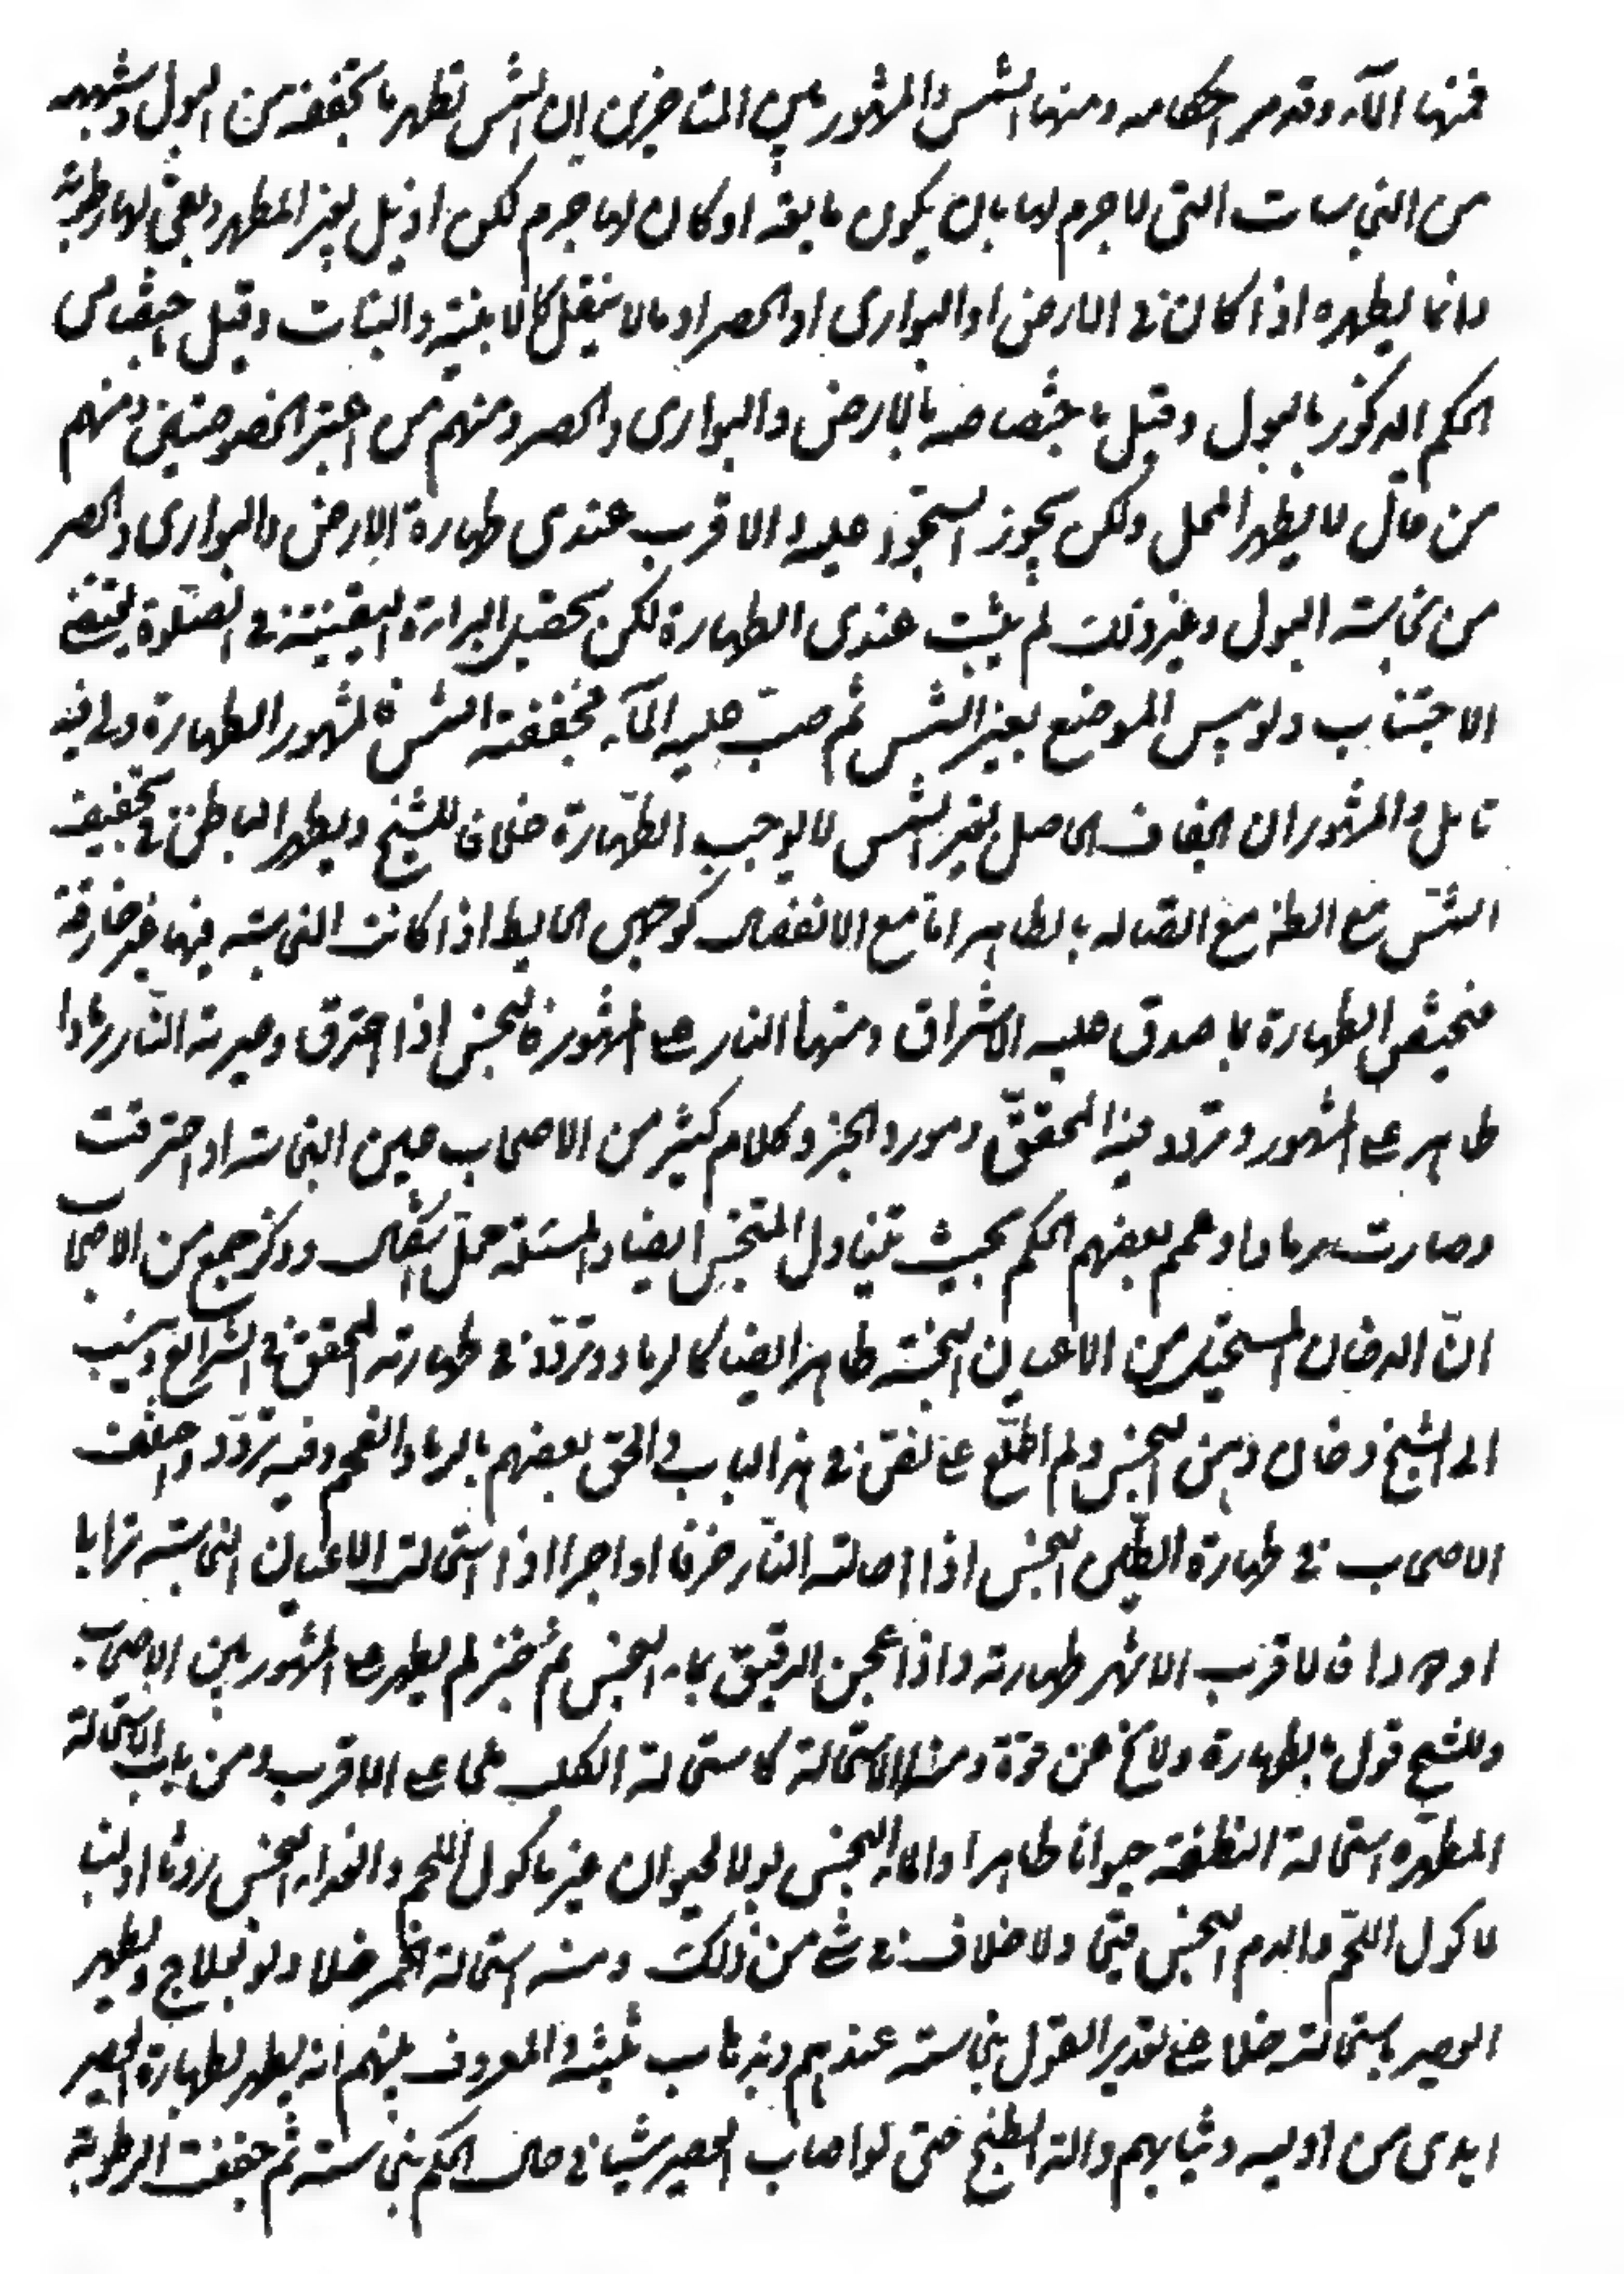 فمنها الماء وقد مر احكامه ومنها الشمس والمشهور بين المتاخرين ان الشمس تطهر ما تجففه من البول وشبهه
من النجاسات التي لا جرم لها بان يكون مايعة او كان لها جرم لكن ازيل بغير المطهر وبقى لها رطوبة
وانما يطهره اذا كان في الارض او البواري او الحصر او ما لا ينقل كالابنية والنباتات وقيل باختصاص
الحكم المذكور بالبول وقيل باختصاصه بالارض والبواري والحصر ومنهم من اعتبر الخصوصيتين ومنهم
من قال لا يطهر المحل ولكن يجوز السجود عليه والاقرب عندى طهارة الارض والبوارى والحصر
من نجاسة البول وغير ذلك لم يثبت عندى الطهارة لكن تحصيل البراءة اليقينية في الصلوة يقتضي
الاجتناب ولو يبس الموضع بغير الشمس ثم صب عليه الماء فجففته الشمس فالمشهور الطهارة ولي فيه
تامل والمشهور ان الجفاف الحاصل بغير الشمس لا يوجب الطهارة خلافا للشيخ ويطهر الباطن في تجفيف
الشمس مع الظاهر مع اتصاله بالظاهر اما مع الانفصال كوجهي الحايط اذا كانت النجاسة فيهما غير خارقة
فيختص الطهارة بما صدق عليه الاشراق ومنها النار على المشهور فالنجس اذا احترق وصيرته النار رمادا
طاهر على المشهور وتردد فيه المحقق ومورد الخبر وكلام كثير من الاصحاب عين النجاسة اذا احترقت
وصارت رمادا وعمم بعضهم الحكم بحيث يتناول المتنجس ايضا والمسئلة محل اشكال وذكر جمع من الاصحاب
ان الدخان المستحيل من الاعيان النجسة طاهر ايضا كالرماد وتردد في طهارته المحقق في الشرايع ونسب
الى الشيخ دخان دهن النجس ولم اطلع على نص في هذا الباب والحق بعضهم بالرماد الفحم وفيه تردد واختلف
الاصحاب في طهارة الطين النجس اذا احالته النار خزفا او اجرا اذا استحالت الاعيان النجاسة ترابا
او دودا فالاقرب الاشهر طهارته واذا عجن الدقيق بماء النجس ثم خبز لم يطهر على المشهور بين الاصحاب
وللشيخ قول بالطهارة ولا يخ عن قوة ومنها الاستحالة كاستحالة الكلب ملحا على الاقرب ومن باب الاستحالة
المطهرة استحالة النطفة حيوانا طاهرا والماء النجس بولا لحيوان غير ماكول اللحم والغذاء النجس روثا او لبنا
لماكول اللحم والدم النجس قيحا ولا خلاف في شئ من ذلك ومنه استحالة الخمر خلا ولو بعلاج ويطهر
العصير باستحالته خلا على تقدير القول بنجاسته عندهم وبذهاب ثلثيه والمعروف بينهم انه يطهر بطهارة العصير
ايدى من اوليه وثيابهم والة الطبخ حتى لو اصاب العصير شيئا في حال الحكم بنجاسته ثم جففت الرطوبة